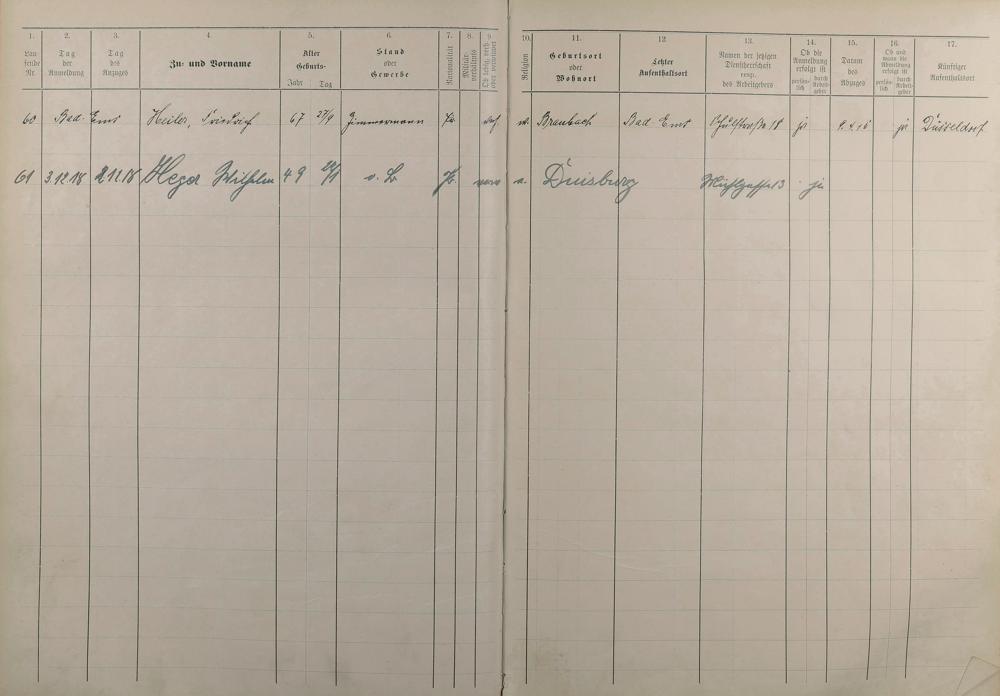 1. 2. 3. 4. 5. 6. 7. 8. 9. 10. 11. 12. 13. 14. 15. 16. 17.
Lau
fende
Nr.
Tag
der
Anmeldung
Tag
des
Anzuges
Zu- und Vorname
Alter
Geburts-
Jahr Tag
Stand
oder
Gewerbe
Nationalität
Militär-
verhältnis
Ob ledig, verh.
oder verwitwet
Religion
Geburtsort
oder
Wohnort
Letzter
Aufenthaltsort
Namen der jetzigen
Dienstherrschaft
resp.
des Arbeitgebers
Ob die
Anmeldung
erfolgt ist
persön-
lich
durch
Arbeit-
geber
Datum
des
Abzuges
Ob und
wann die
Abmeldung
erfolgt ist
persön-
lich
durch
Arbeit-
geber
Künftiger
Aufenthaltsort
60 Bad Ems Heiler, Friedrich 67 27/9 Zimmermann Pr. Braubach Bad Ems Schulstraße 18 ja ja Düsseldorf
61 3.12.18 2.12.18 Heger Wilhelm 49 Duisburg ja